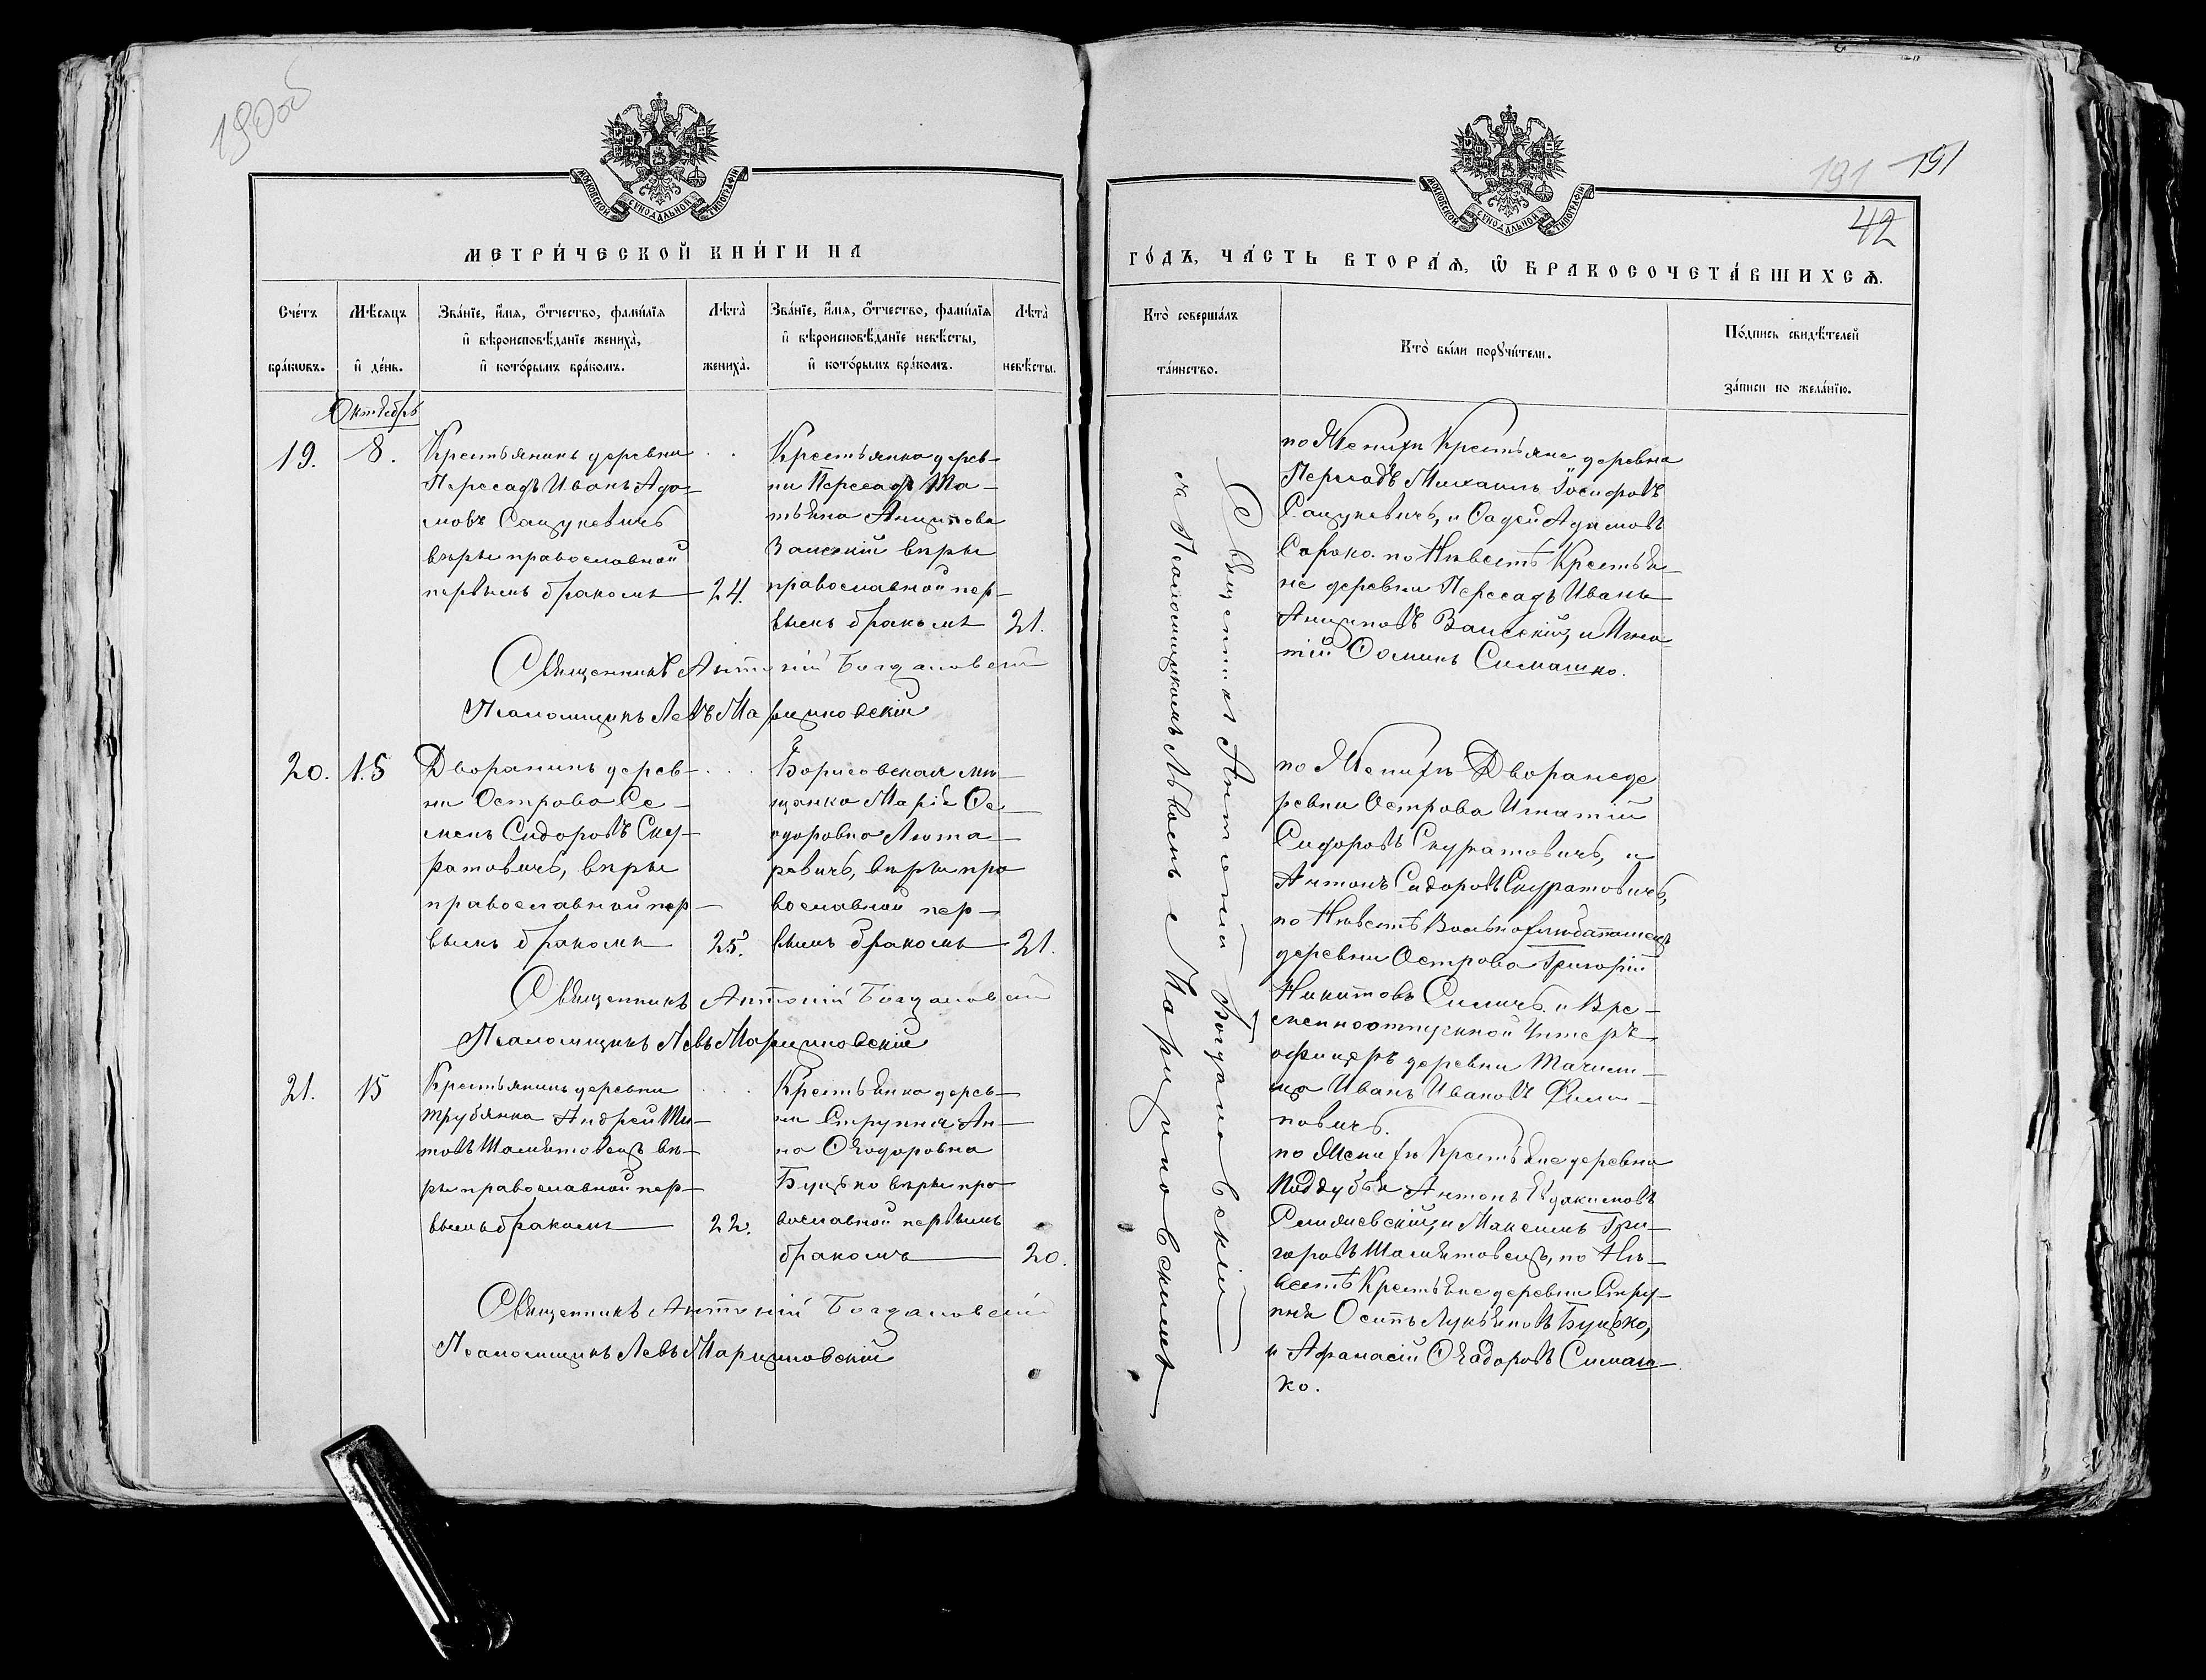 190об
МОСКОВСКОЙ СѴНОДАЛЬНОЙ ТИПОГРАФІИ
МЕТРИ́ЧЕСКОЙ КНИ́ГИ НА
Сче́тъ бра́кωвъ.
Мѣ́сяцъ и де́нь.
Зва́нїе, и́мя, ѻ́тчество, фами́лїя
и вѣроисповѣ́данїе жениха̀,
и кото́рымъ бра́комъ.
Лѣта̀ жениха̀.
Зва́нїе, и́мя, ѻ́тчество, фами́лїя
и вѣроисповѣ́данїе невѣ́сты,
и кото́рымъ бра́комъ.
Лѣта̀ невѣ́сты.
Октябрь
19.
8.
Крестьянинъ деревни
Пересадъ Иванъ Ада-
мовъ Сацукевичъ
вѣры православной
первымъ бракомъ
24.
Крестьянка дерев-
ни Пересадъ Та-
тьяна Анципова
вѣры
православной пер-
вымъ бракомъ
21.
Священникъ Антоній Богдановскій
Псаломщикъ Левъ Марциновскій
20.
15
Дворянинъ дерев-
ни Острова Се-
менъ Сидоровъ Ску-
ратовичъ, вѣры
православной пер-
вымъ бракомъ
25.
Борисовская мѣ-
щанка Марія Ѳе-
одоровна Люта-
ревичъ, вѣры пра
вославной пер-
вымъ бракомъ
21.
Священникъ Антоній Богдановскій
Псаломщикъ Левъ Марциновскій
21.
15
Крестьянинъ деревни
Трубянка Андрей Ти-
товъ вѣ-
ры православной пер-
вымъ бракомъ
22.
Крестьянка дерев-
ни Струпня Ан-
на Ѳеодоровна
Буцько вѣры пра
вославной первымъ
бракомъ
20.
Священникъ Антоній Богдановскій
Псаломщикъ Левъ Марциновскій
191 191
42
МОСКОВСКОЙ СѴНОДАЛЬНОЙ ТИПОГРАФІИ
ГО́ДЪ, ЧА́СТЬ ВТОРА́Я, Ѡ БРАКОСОЧЕТА́ВШИХСЯ.
Кто̀ соверша́лъ
та́инство.
Кто̀ бы́ли порꙋчи́тели.
По́дпись свидѣ́телей
за́писи по жела́нїю.
Священникъ Антоній Богдановскій
съ Псаломщикомъ Львомъ Марциновскимъ
по Женихѣ Крестьяне деревни
Пересадъ Михаилъ Іосифовъ
Сацукевичъ, и Фадей Адамовъ
Сороко. по Невѣстѣ Крестья-
не деревни Пересадъ Иванъ
Анциповъ и Игна-
тій Ѳоминъ Симашко.
по Женихѣ Дворяне де
ревни Острова Игнатій
Сидоровъ Скуратовичъ, и
Антонъ Сидоровъ Скуратовичъ,
по Невѣстѣ
деревни Острова Григорій
Никитовъ и Вре-
менноотпускной Унтеръ
офицеръ деревни
Иванъ Ивановъ Фили-
повичъ.
по Женихѣ Крестьяне деревни
Поддубья Антонъ Евдокимовъ
и Максимъ Гри-
горовъ по Не-
вѣстѣ Крестьяне деревни Стру-
пня Осипъ Лукьяновъ Буцько,
и Афанасій Ѳеодоровъ Симаш-
ко.